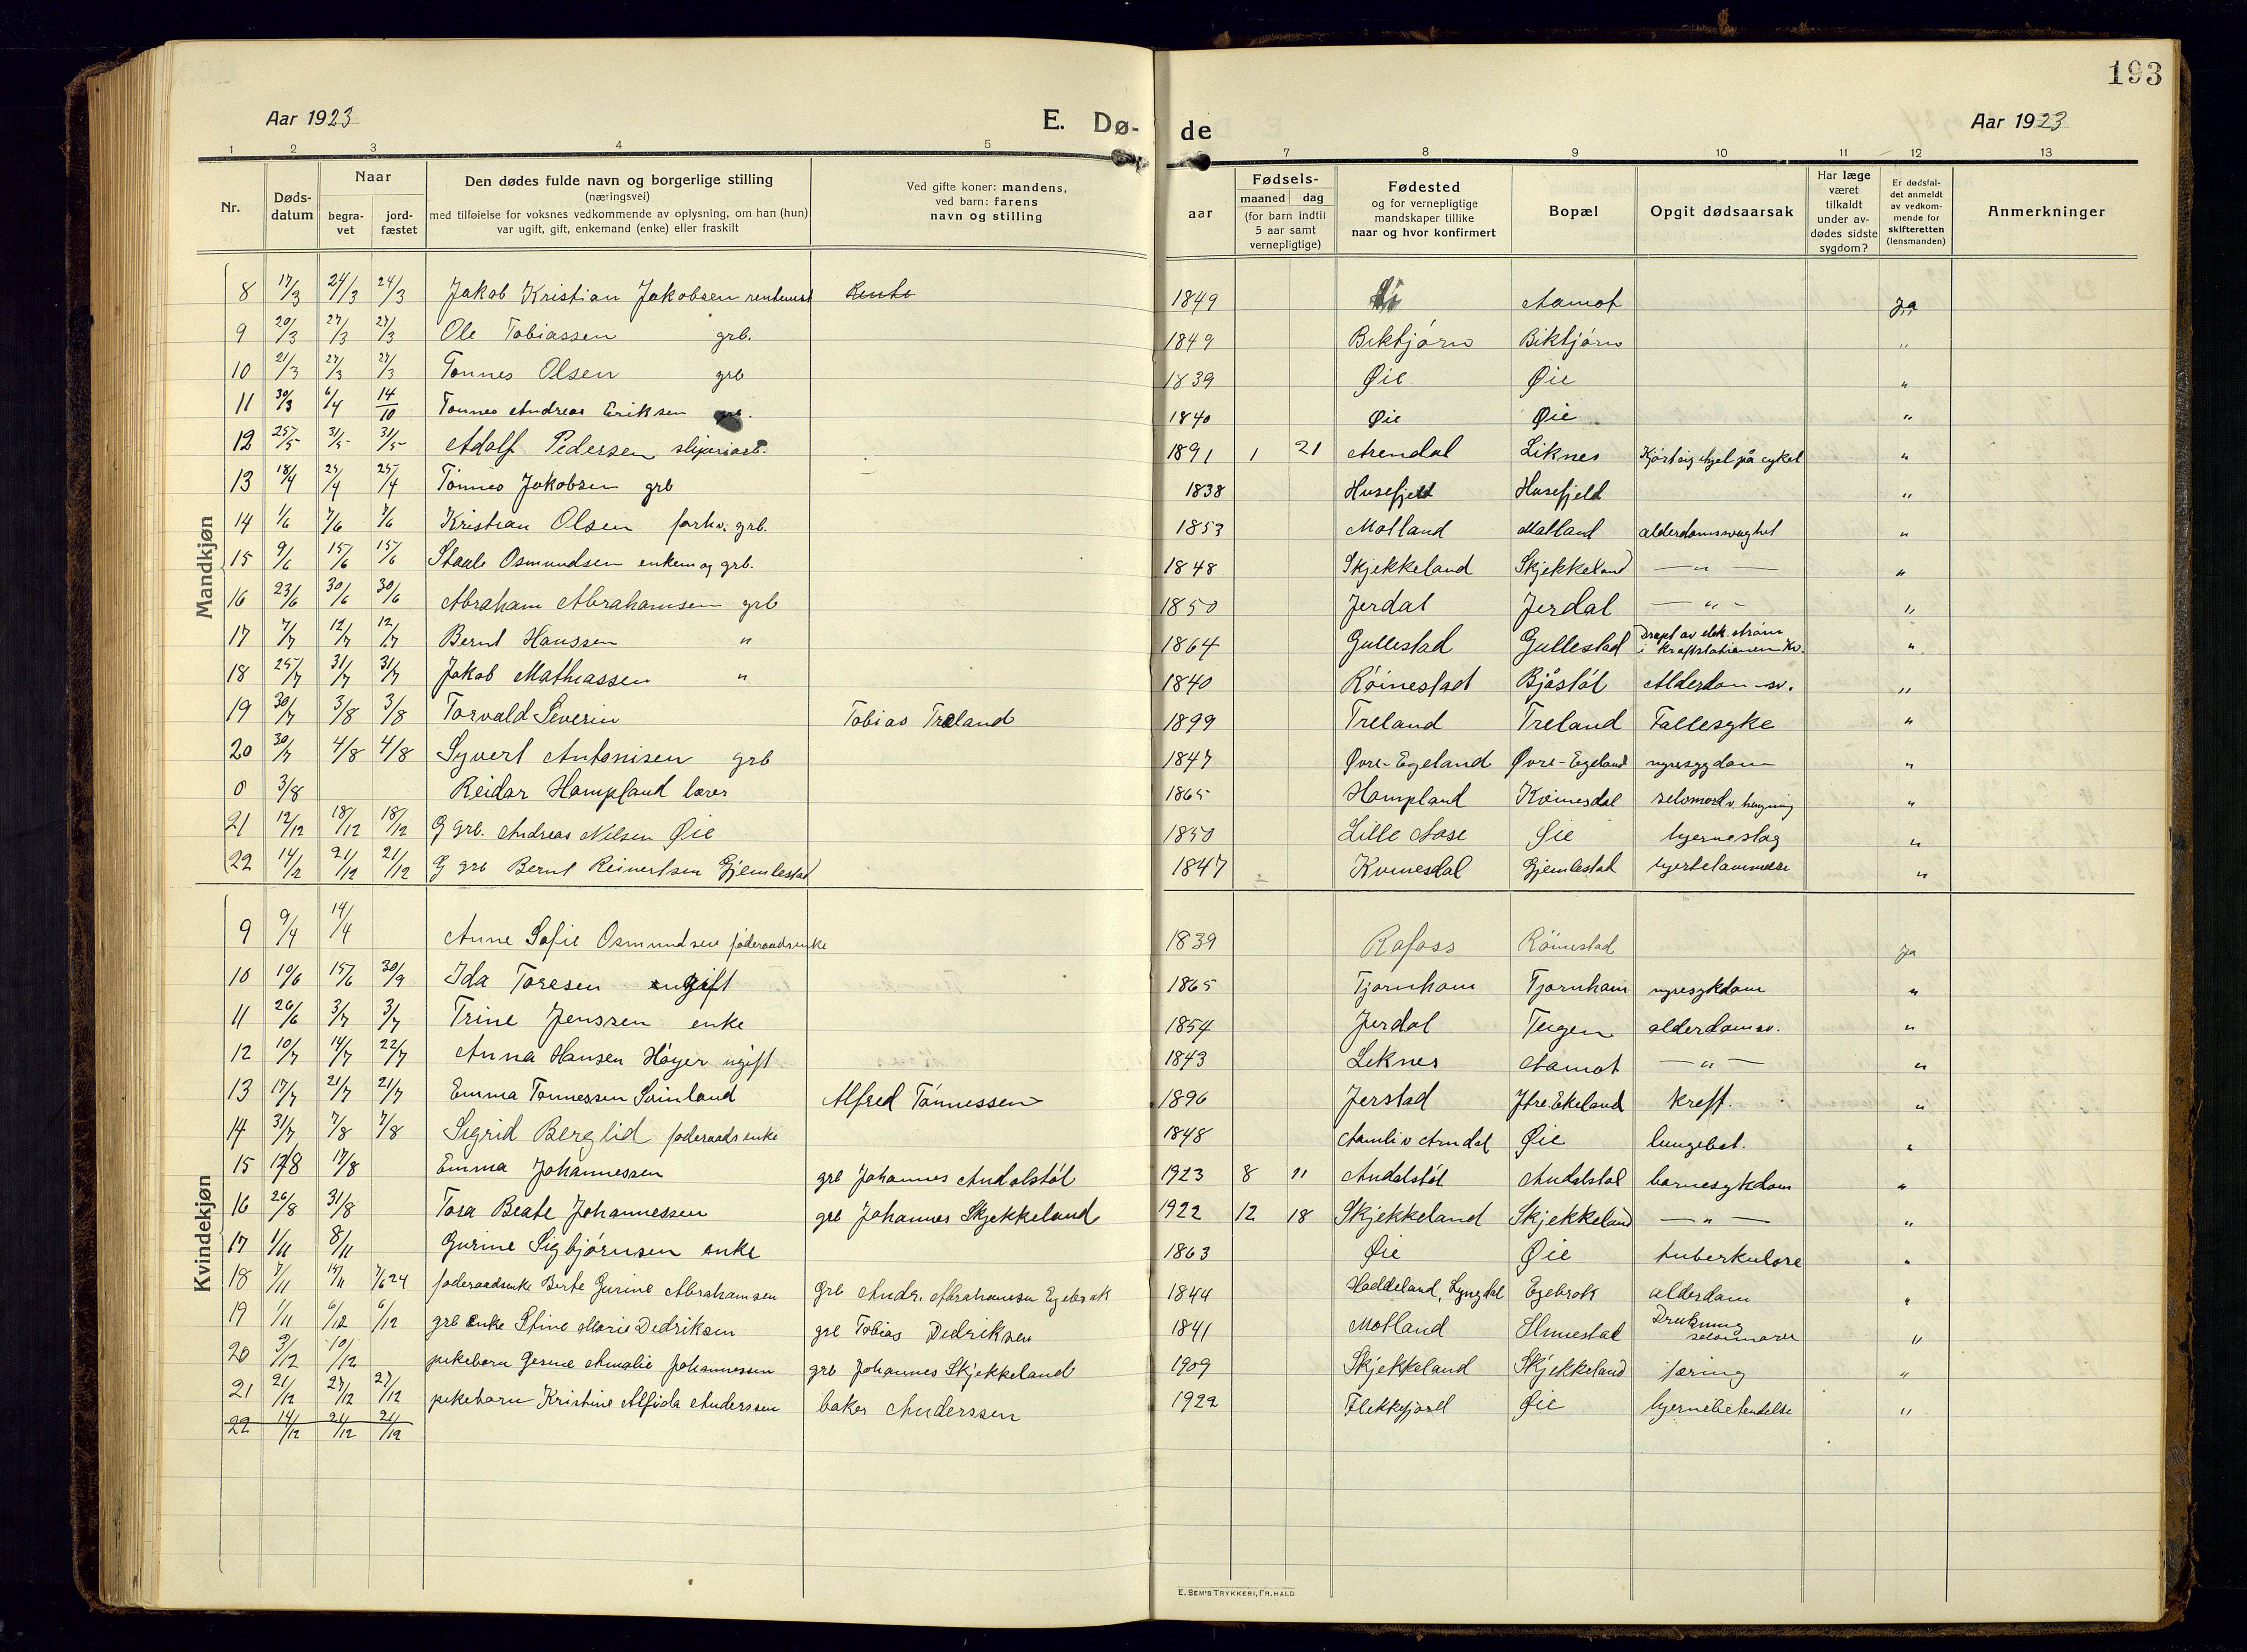 193
Aar 1923 E. Dø- de Aar 1923
1 2 3 4 5 7 8 9 10 11 12 13
Nr. Døds-datum Naar begra-vet jord-fæstet Den dødes fulde navn og borgerlige stilling (næringsvei) med tilføielse for voksnes vedkommende av oplysning, om han (hun) var ugift, gift, enkemand (enke) eller fraskilt Ved gifte koner: mandens, ved barn: farens navn og stilling aar Fødsels- maaned dag (for barn indtil 5 aar samt vernepligtige) Fødested og for vernepligtige mandskaper tillike naar og hvor konfirmert Bopæl Opgit dødsaarsak Har læge været tilkaldt under av-dødes sidste sygdom? Er dødsfal-det anmeldt av vedkom-mende for skifteretten (lensmanden) Anmerkninger
Mandkjøn
8 17/3 24/3 24/3 Jakob Kristian Jakobsen 1849 Aamot ja
9 20/3 27/3 27/3 Ole Tobiassen grb. 1849 Biktjørn Biktjørn "
10 21/3 27/3 27/3 Tønnes Olsen grb 1839 Øie Øie "
11 30/3 6/4 14/10 Tønnes Andreas Eriksen 1840 Øie Øie "
12 25/5 31/5 31/5 Adolf Pedersen sliperiarb. 1891 1 21 Arendal Liknes Kjørt sig ihjel på cykel "
13 18/4 25/4 25/4 Tønnes Jakobsen grb 1838 Husefjeld Husefjeld "
14 1/6 7/6 7/6 Kristian Olsen forhv. grb. 1853 Motland Motland alderdomssvaghet "
15 9/6 15/6 15/6 Staale Osmundsen enkem og grb. 1848 Skjekkeland Skjekkeland — " — "
16 23/6 30/6 30/6 Abraham Abrahamsen grb 1850 Jerdal Jerdal — " — "
17 7/7 12/7 12/7 Bernt Hanssen " 1864 Gullestad Gullestad Dræpt av elek. strøm i kraftstationen Kv. "
18 25/7 31/7 31/7 Jakob Mathiassen " 1840 Røinestad Bjåstøl Alderdom sv. "
19 30/7 3/8 3/8 Torvald Severin Tobias Treland 1899 Treland Treland Fallesyke "
20 30/7 4/8 4/8 Syvert Antonisen grb 1847 Øvre-Egeland Øvre-Egeland nyresygdom "
0 3/8 Reidar Hompland lærer 1865 Hompland Kvinesdal selvmord v. hengning "
21 12/12 18/12 18/12 G grb. Andreas Nilsen Øie 1850 Lille Aase Øie hjerneslag "
22 14/12 21/12 21/12 G grb Bernt Reinertsen Gjemlestad 1847 Kvinesdal Gjemlestad hjertelammelse "
Kvindekjøn
9 9/4 14/4 Anne Sofie Osmundsen føderaadsenke 1839 Rafoss Röinestad ja
10 10/6 15/6 30/9 Ida Toresen ugift 1865 Tjørnhom Tjørnhom nyresykdom "
11 26/6 3/7 3/7 Trine Jenssen enke 1854 Jerdal Teigen alderdomsv. "
12 10/7 14/7 22/7 Anna Hansen Høyer ugift 1843 Liknes Aamot — " — "
13 17/7 21/7 21/7 Emma Tønnessen Sinland Alfred Tønnessen 1896 Jerstad Ytre Ekeland kreft. "
14 31/7 7/8 7/8 Sigrid Berglid føderaadsenke 1848 Aamli v Arndal Øie lungebet. "
15 12/8 17/8 Emma Johannessen grb Johannes Andalstøl 1923 8 11 Andalstøl Andalstøl barnesykdom "
16 26/8 31/8 Tora Beate Johannessen grb Johannes Skjekkeland 1922 12 18 Skjekkeland Skjekkeland — " — "
17 1/11 8/11 Gurine Sigbjørnsen enke 1863 Øie Øie tuberkulose "
18 7/11 15/11 7/6 24 føderaadsenke Berte Gurine Abrahamsen Grb Andr. Abrahamsen Egebrok 1844 Haddeland, Lyngdal Egebrok alderdom "
19 1/11 6/12 6/12 grb enke Stine Marie Dedriksen grb Tobias Dedriksen 1841 Motland Drukning selvmord "
20 3/12 10/12 pikebarn Gesine Amalie Johannessen grb Johannes Skjekkeland 1909 Skjekkeland Skjekkeland tæring "
21 21/12 27/12 27/12 pikebarn Kristine Alfida Anderssen baker Anderssen 1922 Flekkefjord Øie hjernebetendelse "
22 14/12 21/12 21/12
E. SEM'S TRYKKERI, FR.HALD